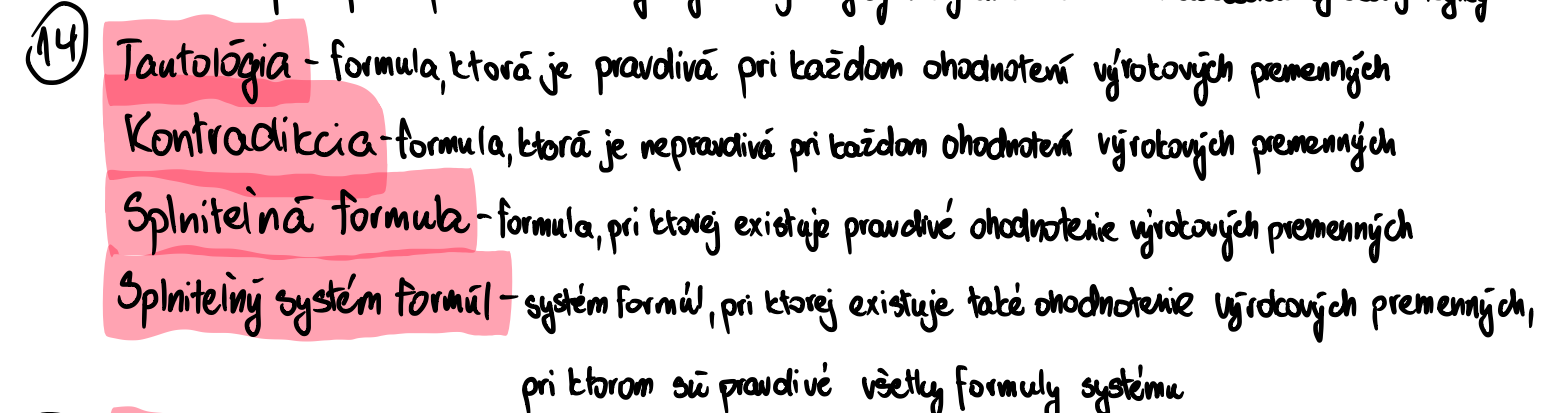 14 Tautológia - formula, ktorá je pravdivá pri každom ohodnotení výrokových premenných
Kontradikcia - formula, ktorá je nepravdivá pri každom ohodnotení výrokových premenných
Splniteľná formula - formula, pri ktorej existuje pravdivé ohodnotenie výrokových premenných
Splniteľný systém formúl - systém formúl, pri ktorej existuje také ohodnotenie výrokových premenných,
pri ktorom sú pravdivé všetky formuly systému